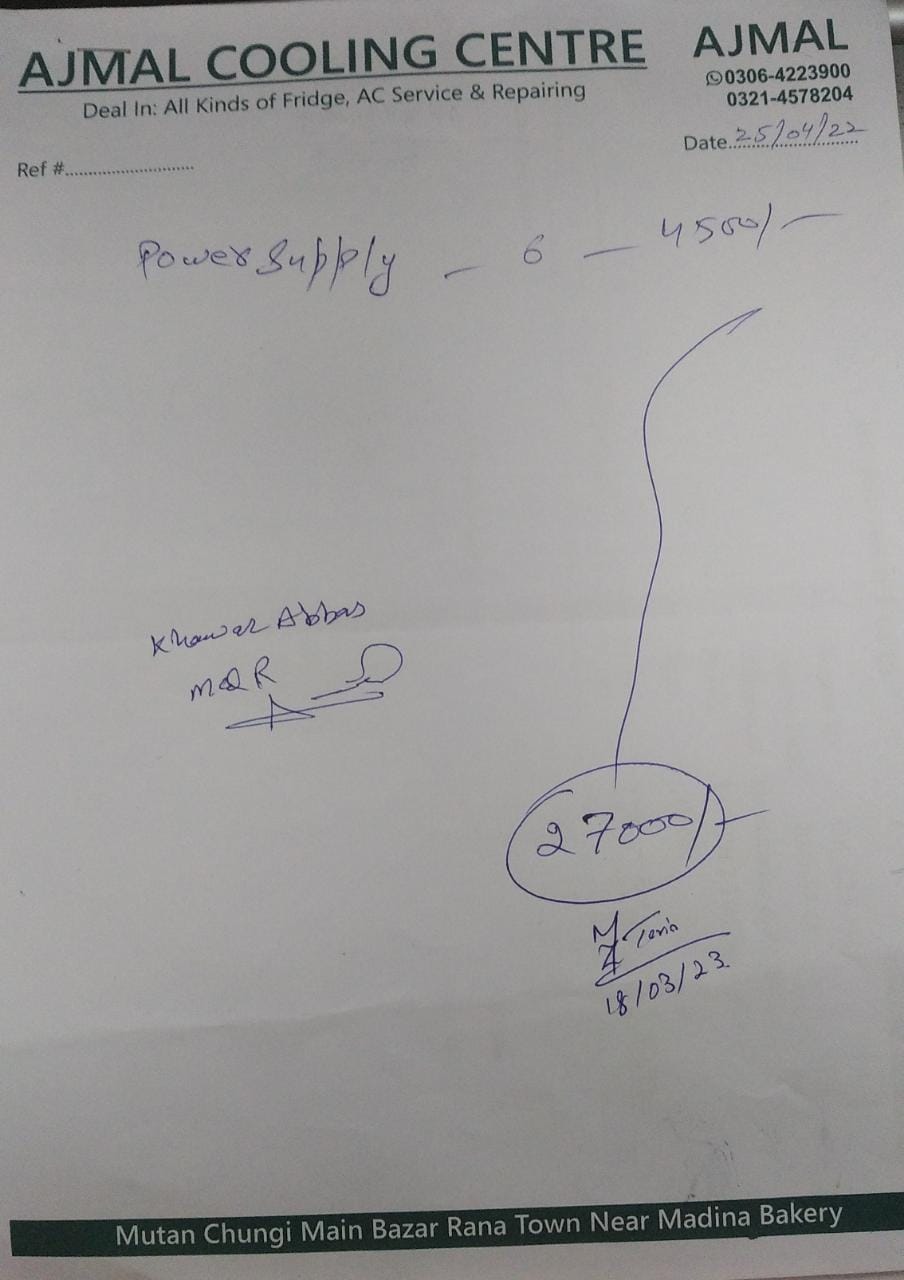 AJMAL COOLING CENTRE
Deal In: All Kinds of Fridge, AC Service & Repairing
AJMAL
0306-4223900
0321-4578204
Date 25/04/22
Ref #
Power Supply - 6 - 4500/-
Khawar Abbas
MQR
27000/-
18/03/23
Mutan Chungi Main Bazar Rana Town Near Madina Bakery